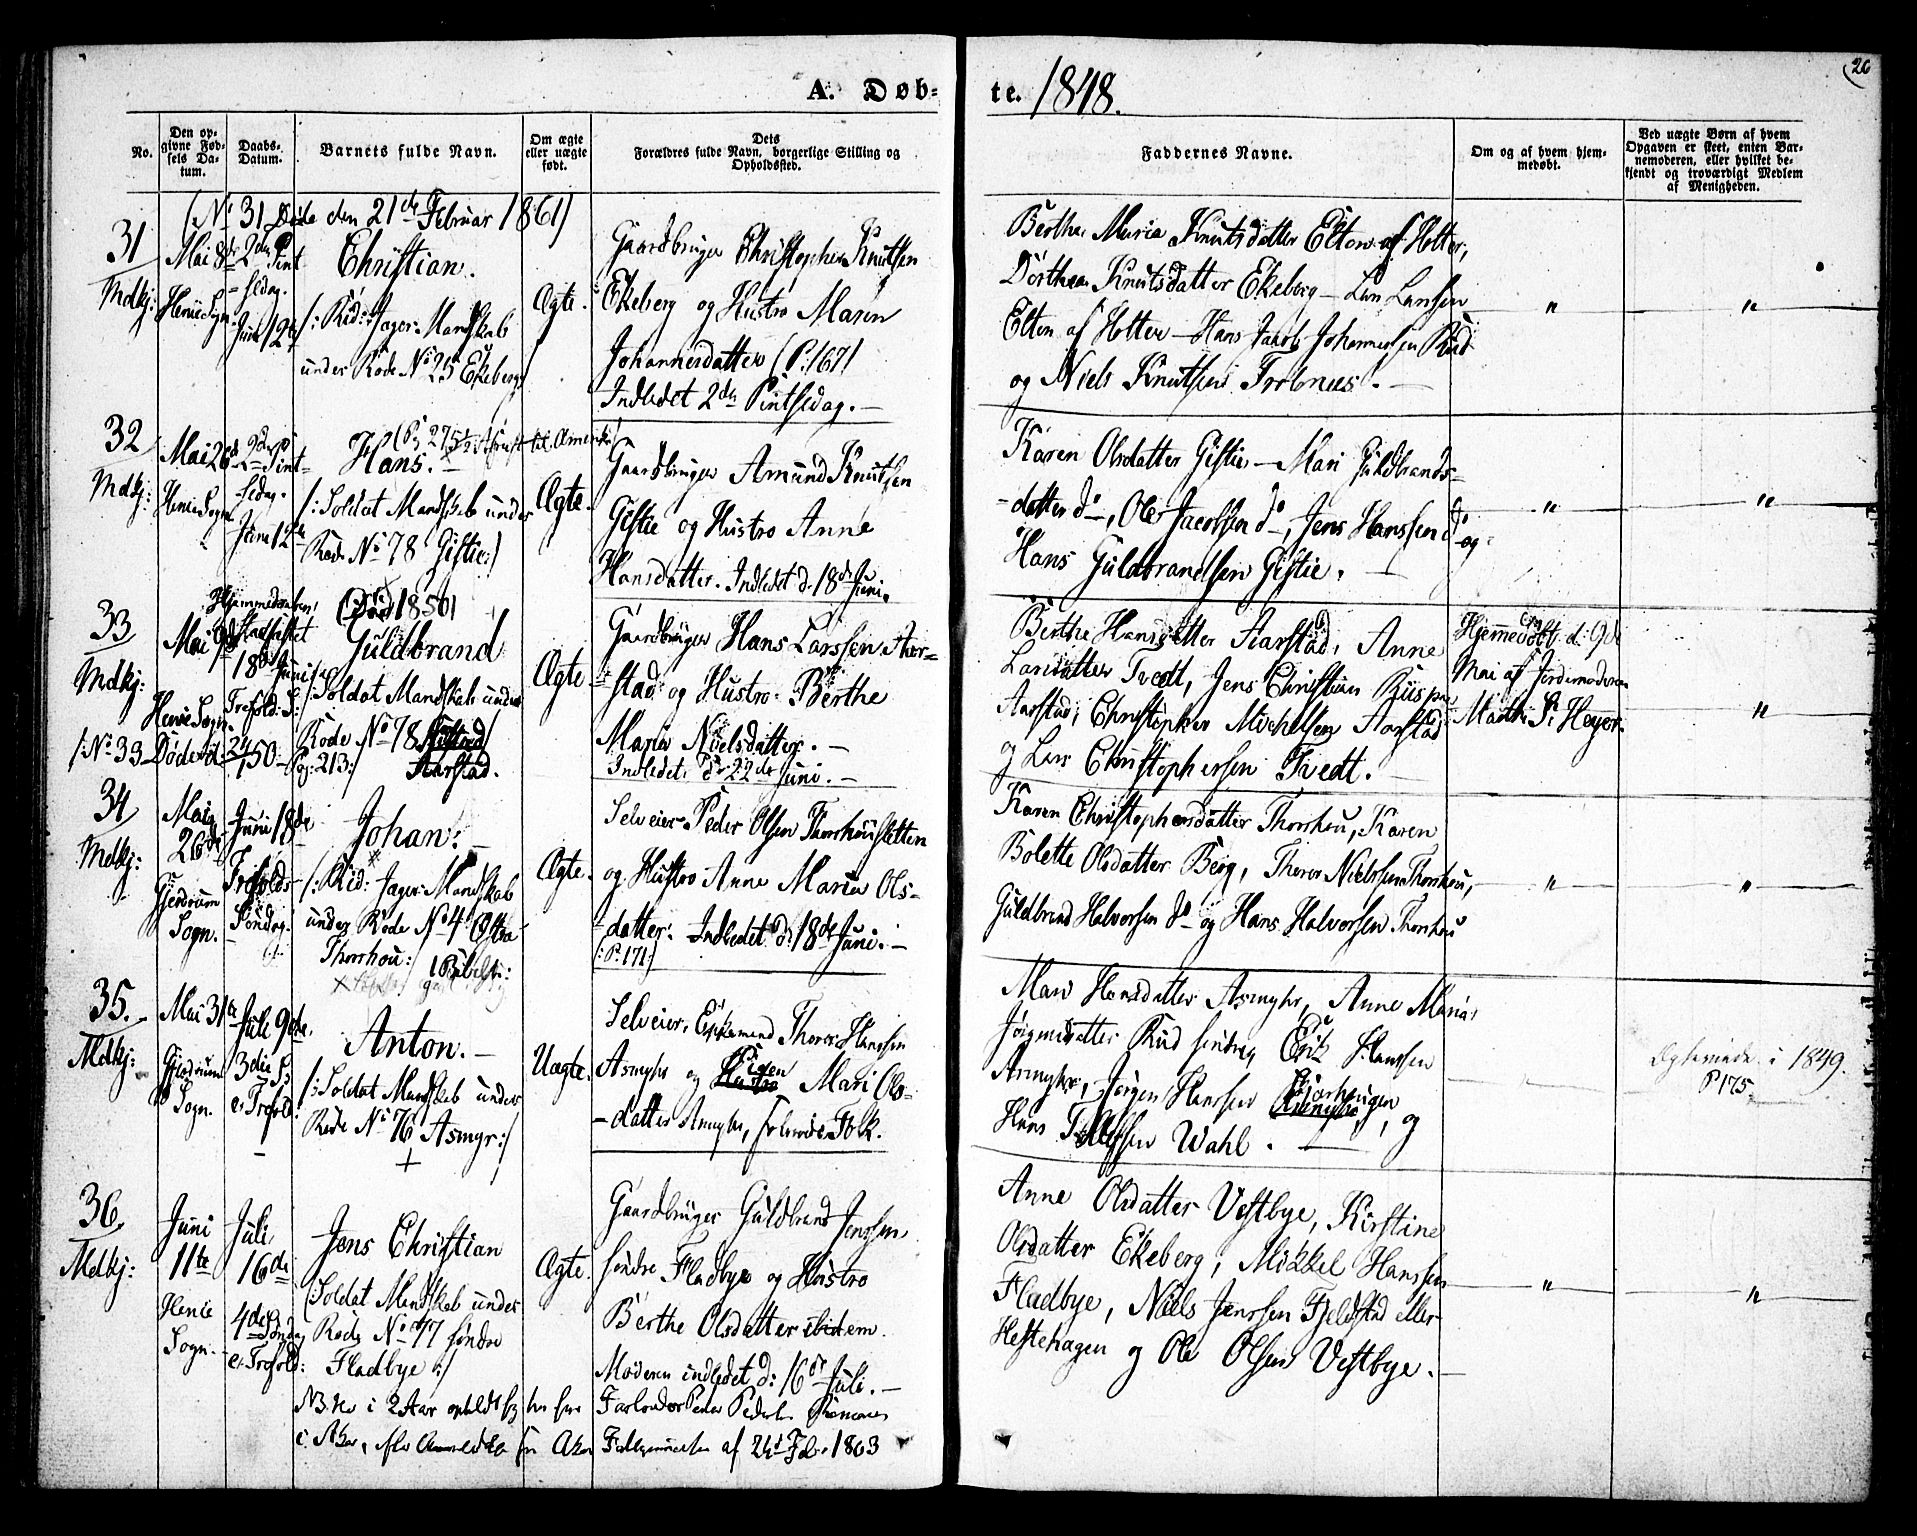 A. Døb-
te. 1848.
26
No.
Den op-
givne Fød-
sels Da-
tum.
Daabs-
Datum.
Barnets fulde Navn.
Om ægte
eller uægte
født.
Dets
Forældres fulde Navn, borgerlige Stilling og
Opholdssted.
Faddernes Navne.
Om og af hvem hjem-
medøbt.
Ved uægte Børn af hvem
Opgaven er skeet, enten Bar-
nemoderen, eller hvilket be-
kjendt og troværdigt Medlem
af Menigheden.
(No 31 Døde den 21de Februar 1861)
31
Mdkj:
Mai 8de
Henie Sogn.
2den Pint
sedag.
Juni 12te
Christian.
/: Rid: Jager: Mandskab
under Rode No 25 Ekeberg
Ægte.
Gaardbruger Christopher Knutsen
Ekeberg og Hustro Maren
Johannesdatter (P. 167)
Indledet 2den Pintsedag.
Berthe Maria Knutsdatter Elton af Holter,
Dorthea Knutsdatter Ekeberg – Lars Larssen
Elton af Holter – Hans Jacob Johannessen Rud
og Niels Knutsen
" "
32
Mdkj:
Mai 26de
Henie Sogn
2den Pint-
sedag.
Juni 12te
til Amerika
Hans.
/: Soldat Mandskab under
Rode No 78 Gistie :/
Ægte.
Gaardbruger Amund Knutsen
Gistie og Hustro Anne
Hansdatter. Indledet d. 18de Juni.
Karen Olsdatter Gistie – Mari Guldbrands-
-datter do, Ole Jacobsen do, Jens Hanssen do og
Hans Guldbrandsen Gistie.
" "
33
Mdkj:
Mai 9de
Henie Sogn.
Hjemmedøben
stadfæstet
18de Juni
Trefold: S:
/: No 33 Døde d: 24 50. Pag: 213:/
(Død 1850)
Guldbrand
/: Soldat Mandskab under
Rode No 78
Aarstad.
Ægte
Gaardbruger Hans Larssen Aar-
stad og Hustro Berthe
Maria Nielsdatter.
Indledet d. 22de Juni.
Berthe Hansdatter Aarstad, Anne
Larsdatter Tvedt, Jens Christian
Aarstad, Christopher Michelsen Aarstad
og Lars Christophersen Tvedt.
Hjemmedøbt d: 9de
Mai af Jordemoderen
Marthe Heyer.
"
34
Mdkj:
Mai
26de
Gjerdrum
Sogn.
Juni 18de
Trefolds
Søndag.
Johan.
/: Rid: Jager: Mandskab
under Rode No 4 Østre
Thorshou:/
Ægte.
Selveier Peder Olsen Thorshousletten
og Hustro Anne Maria Ols-
-datter. Indledet d. 18de Juni.
(: P. 171:)
Karen Christophersdatter Thorshou, Karen
Bolette Olsdatter Berg, Thorer Nielssen Thorshou,
Guldbrand Halvorsen do og Hans Halvorsen Thorshou
" "
35.
Mdkj:
Mai 31te
Gjerdrum
Sogn.
Juli 9de.
3die S:
e: Trefold:
Anton.
/: Soldat Mandskab under
Rode No 76 Asmyr:/
Uægte.
Selveier, Enkemand Thorer Hanssen
Asmyhr og Pigen Mari Ols-
-datter Asmyhr, Folk.
Mari Hansdatter Asmyhr, Anne Maria
Jørgensdatter Rud søndre, Eric Hanssen
Asmyhr, Jørgen Hanssen, og
Hans Wahl.
Ægteviede i 1849.
P 175.
36
Mdkj:
Juni
11te
Henie
Sogn.
Juli
16de
4de Søndag
e: Trefold:
Jens Christian
(: Soldat Mandskab under
Rode No 77 søndre
Fladbye :/
Ægte.
Gaardbruger Guldbrand Jenssen
søndre Fladbye og Hustro
Berthe Olsdatter ibidem.
Moderen indledet d: 16de Juli.
Anne Olsdatter Vestbye, Kirstine
Olsdatter Ekeberg, Mikkel Hanssen
Fladbye, Niels Jenssen Fjeldstad eller
Hestehagen og Ole Olsen Vestbye.
" "
NB. i 2 Aar
af 24de Febr. 1863